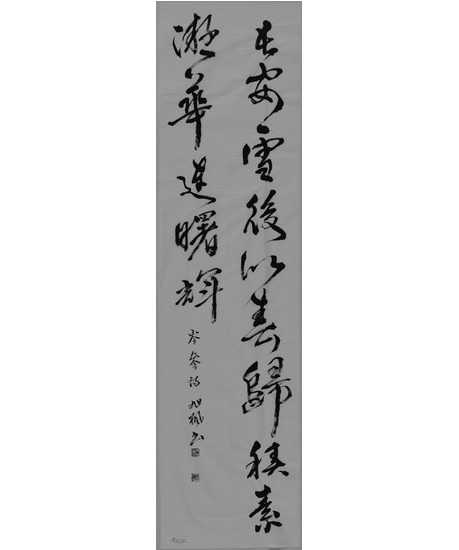 長安雪後似春歸積素
凝華連曙輝
岑參詩